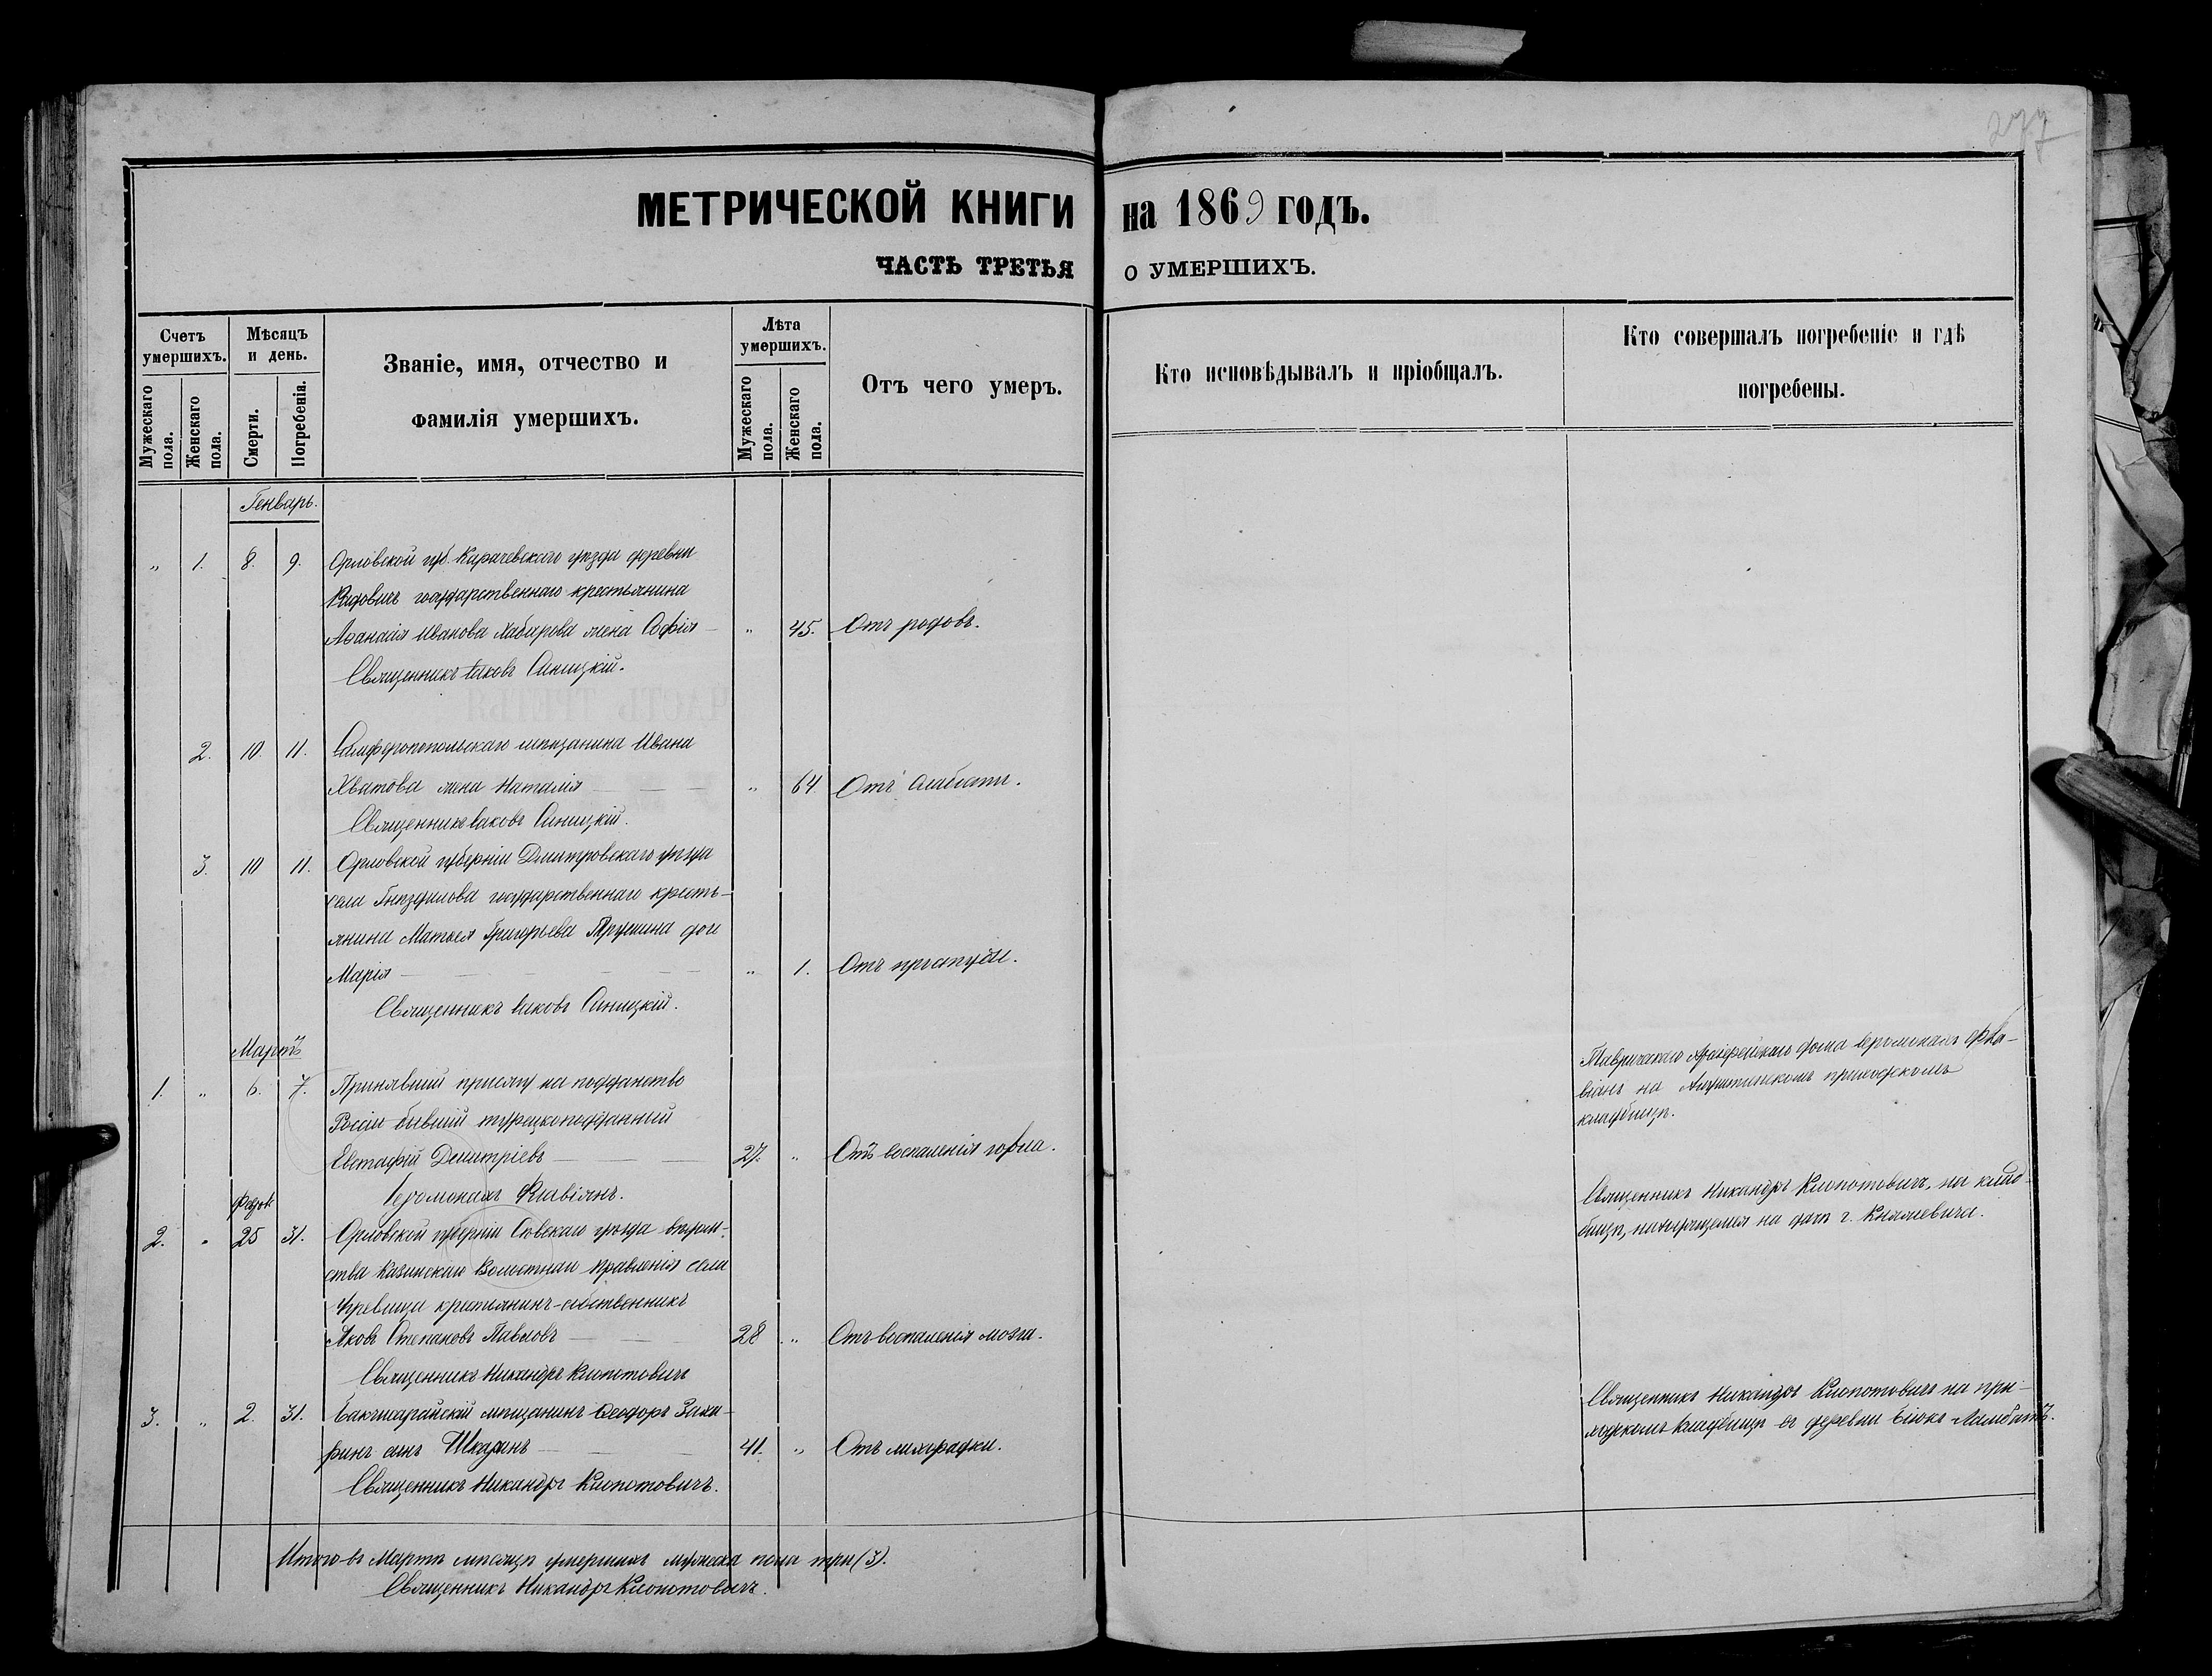 277
МЕТРИЧЕСКОЙ КНИГИ на 1869 ГОДЪ.
ЧАСТЬ ТРЕТЬЯ О УМЕРШИХЪ.
Счетъ умершихъ.
Мужескаго пола.
Женскаго пола.
Мѣсяцъ и день.
Смерти.
Погребенія.
Званіе, имя, отчество и
фамилія умершихъ.
Лѣта умершихъ.
Мужескаго пола.
Женскаго пола.
Отъ чего умеръ.
Кто исповѣдывалъ и пріобщалъ.
Кто совершалъ погребеніе и гдѣ
погребены.
Генварь.
„ 1. 8. 9. Орловской губ. Карачевскаго уѣзда деревни
государственнаго крестьянина
Аѳанасія Иванова Хабарова жена Софія „ 45. Отъ родовъ.
Священникъ Іаковъ Синицкій.
2. 10. 11. Симферопопольскаго мѣщанина Ивана
Хватова жена Наталія „ 64 Отъ слабости.
Священникъ Іаковъ Синицкій.
3. 10 11. Орловской губерніи Дмитровскаго уѣзда
села Гнѣздилова государственнаго кресть-
янина Матвея Григорьева дочь
Марія „ 1. Отъ простуды.
Священникъ Іаковъ Синицкій.
Мартъ
1. „ 6. 7. Принявшій присягу на подданство
Росіи бывшій турецкоподданный
Евстафій Димитріевъ 27. „ Отъ воспаленія горла.
Іеромонахъ Флавіанъ.
Таврическаго Архіерейскаго дома іеромонахъ Фла-
віанъ на Алуштинскомъ приходскомъ
кладбищѣ.
2. „ 25 31. Орловской губерніи Сѣвскаго уѣзда вѣдом-
ства Волостнаго Правленія села
крестьянинъ-собственникъ
Яковъ Степановъ Павловъ 28 „ Отъ воспаленія мозга.
Священникъ Никандръ Клопотовичъ
Священникъ Никандръ Клопотовичъ, на клад-
бищѣ, находящемся на дачѣ г. Княжевича.
3. „ 2. 31. Бакчисарайскій мѣщанинъ Ѳеодоръ Заха-
ринъ сынъ 41. „ Отъ лихорадки.
Священникъ Никандръ Клопотовичъ.
Священникъ Никандръ Клопотовичъ на при-
ходскомъ кладбищѣ въ деревни Біюкъ Ламбатъ.
Итого въ Мартѣ мѣсяцѣ умершихъ мужеска пола три (3).
Священникъ Никандръ Клопотовичъ.